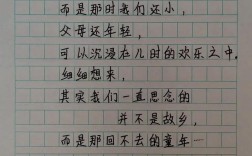 而是那时我们还小，
父母还年轻，
可以沉浸在儿时的欢乐之中，
细细想来，
其实我们一直思念的
并不是故乡，
而是那回不去的童年一